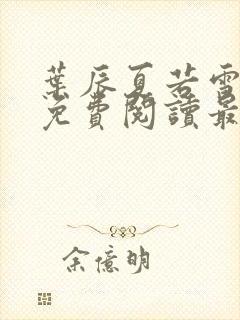 葉辰夏若雪
免費閱讀最
余億明